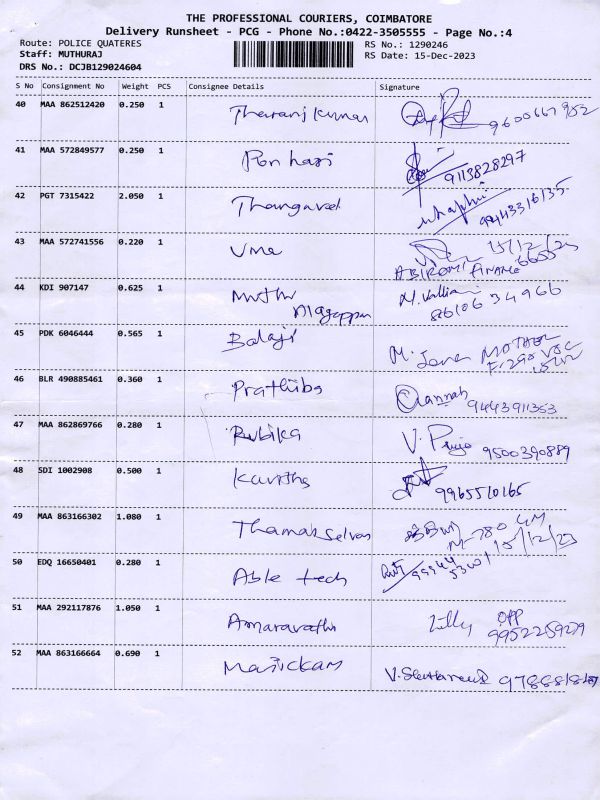 THE PROFESSIONAL COURIERS, COIMBATORE
Delivery Runsheet - PCG - Phone No.:0422-3505555 - Page No.:4
Route: POLICE QUATERES RS No.: 1290246
Staff: MUTHURAJ RS Date: 15-Dec-2023
DRS No.: DCJB129024604
S No Consignment No Weight PCS Consignee Details Signature
40 MAA 862512420 0.250 1 Tharanj kumar 9600667952
41 MAA 572849577 0.250 1 Pon hasi 9113828297
42 PGT 7315422 2.050 1 Thangavel 9443316135
43 MAA 572741556 0.220 1 Uma 15/12/23
ABIROMI FINANCE
44 KDI 907147 0.625 1 Muthu M. Valli 8610634966
Alagappan
45 PDK 6046444 0.565 1 Balaji M. Jana MOTHER
46 BLR 490885461 0.360 1 Prathiba 9443911353
47 MAA 862869766 0.280 1 Rubika V. Priya 9500390889
48 SDI 1002908 0.500 1 Kavitha 9965510165
49 MAA 863166302 1.080 1 Thamarselvan M-780
15/12/23
50 EDQ 16650401 0.280 1 Able tech
51 MAA 292117876 1.050 1 Amaravathi Lilly opp
9952259279
52 MAA 863166664 0.690 1 Manickam